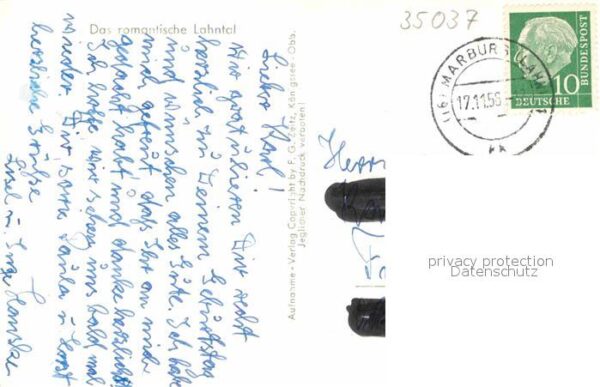 Das romantische Lahntal
35037
(16) MARBURG (LAHN)
17.11.56
kk
10
DEUTSCHE
BUNDESPOST
Lieber Karl!
Wir gratulieren Dir recht
herzlich zu Deinem Geburtstag
und wünschen alles Gute. Ich habe
mich gefreut, daß Ihr an mich
gedacht habt und danke herzlichst
Ich hoffe wir sehen uns bald mal
wieder. Dir,
herzliche Grüße
Aufnahme + Verlag Copyright by F. G. Zeitz, Königsee - Obb.
Jeglicher Nachdruck verboten!
Herrn
privacy protection
Datenschutz